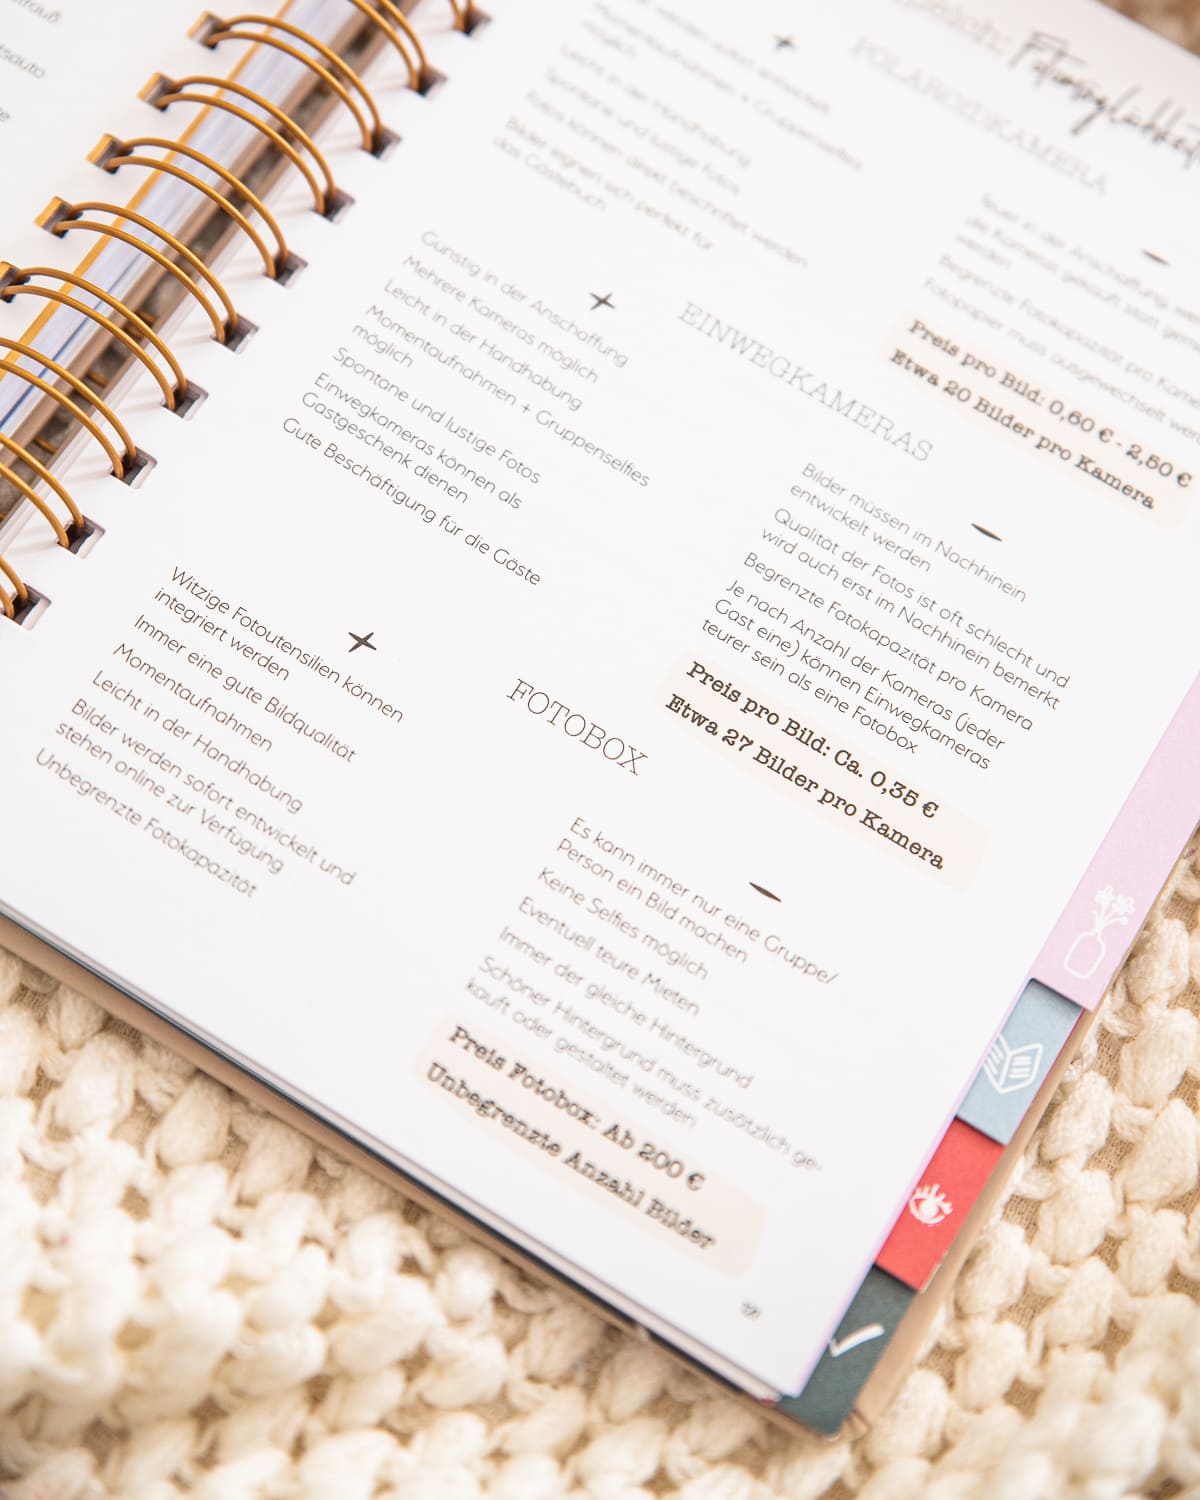 POLAROIDKAMERA
werden sofort entwickelt
Momentaufnahmen + Gruppenselfies
möglich
Leicht in der Handhabung
Spontane und lustige Fotos
Fotos können direkt beschriftet werden
Bilder eignen sich perfekt für
das Gästebuch
Teuer in der Anschaffung,
die Kameras gekauft statt
werden
Begrenzte Fotokapazität pro
Fotopapier muss ausgewechselt
Preis pro Bild: 0,60 € - 2,50 €
Etwa 20 Bilder pro Kamera
EINWEGKAMERAS
Günstig in der Anschaffung
Mehrere Kameras möglich
Leicht in der Handhabung
Momentaufnahmen + Gruppenselfies
möglich
Spontane und lustige Fotos
Einwegkameras können als
Gastgeschenk dienen
Gute Beschäftigung für die Gäste
Bilder müssen im Nachhinein
entwickelt werden
Qualität der Fotos ist oft schlecht und
wird auch erst im Nachhinein bemerkt
Begrenzte Fotokapazität pro Kamera
Je nach Anzahl der Kameras (jeder
Gast eine) können Einwegkameras
teurer sein als eine Fotobox
Preis pro Bild: Ca. 0,35 €
Etwa 27 Bilder pro Kamera
FOTOBOX
Witzige Fotoutensilien können
integriert werden
Immer eine gute Bildqualität
Momentaufnahmen
Leicht in der Handhabung
Bilder werden sofort entwickelt und
stehen online zur Verfügung
Unbegrenzte Fotokapazität
Es kann immer nur eine Gruppe/
Person ein Bild machen
Keine Selfies möglich
Eventuell teure Mieten
Immer der gleiche Hintergrund
Schöner Hintergrund muss zusätzlich ge-
kauft oder gestaltet werden
Preis Fotobox: Ab 200 €
Unbegrenzte Anzahl Bilder